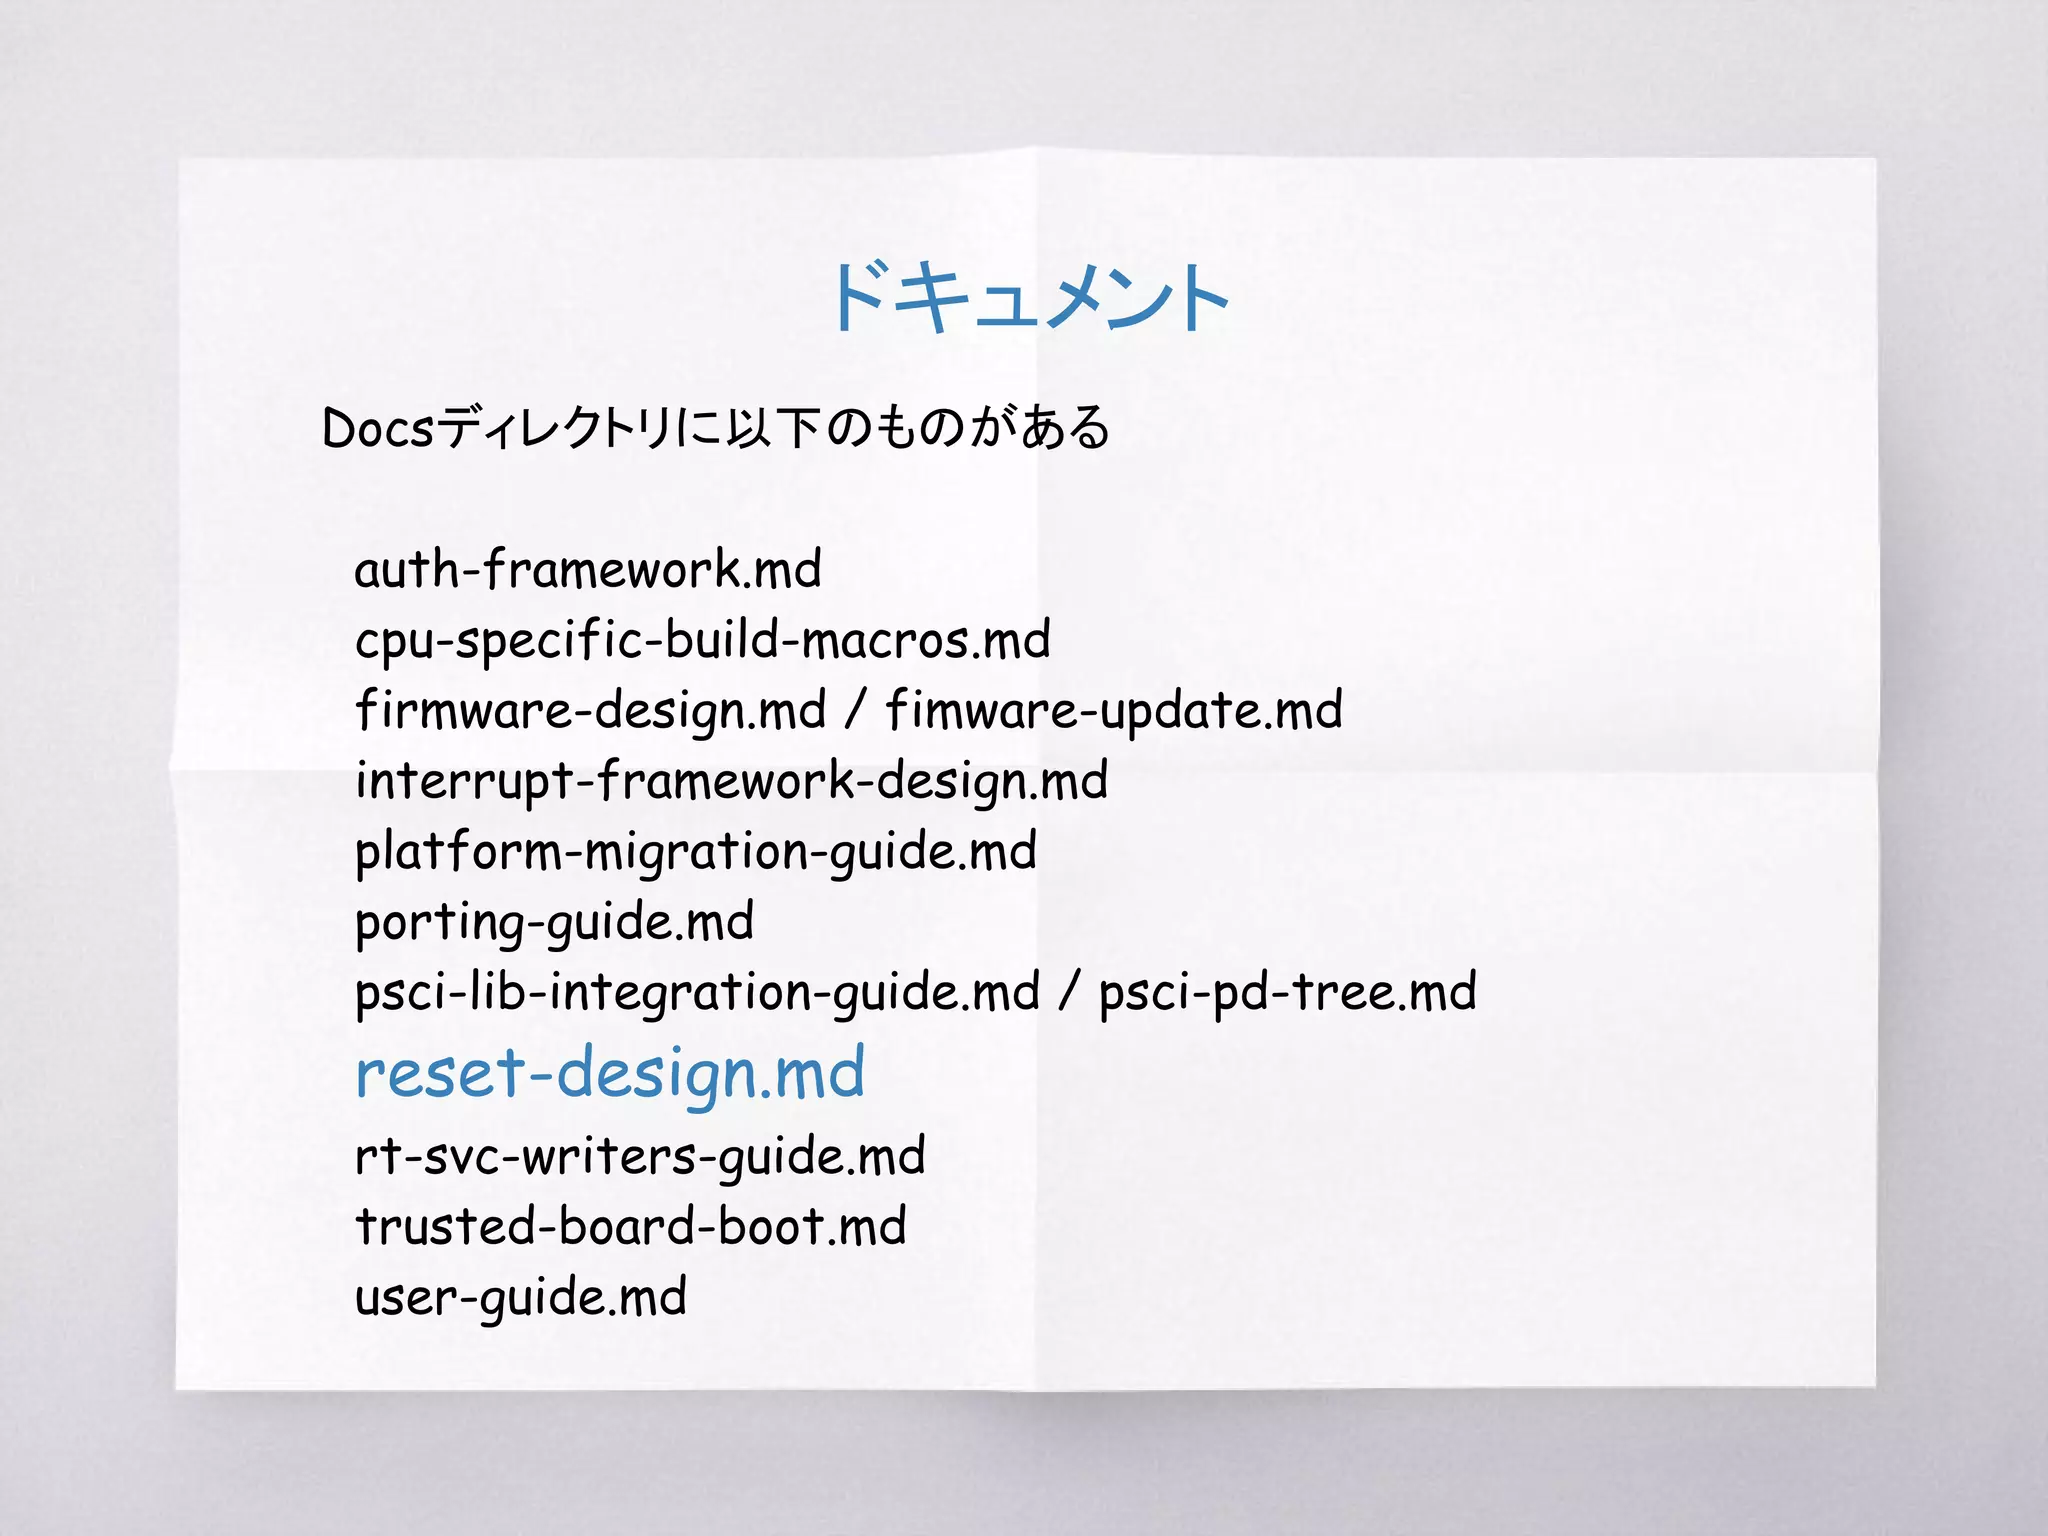 ドキュメント
Docsディレクトリに以下のものがある
auth-framework.md
cpu-specific-build-macros.md
firmware-design.md / fimware-update.md
interrupt-framework-design.md
platform-migration-guide.md
porting-guide.md
psci-lib-integration-guide.md / psci-pd-tree.md
reset-design.md
rt-svc-writers-guide.md
trusted-board-boot.md
user-guide.md